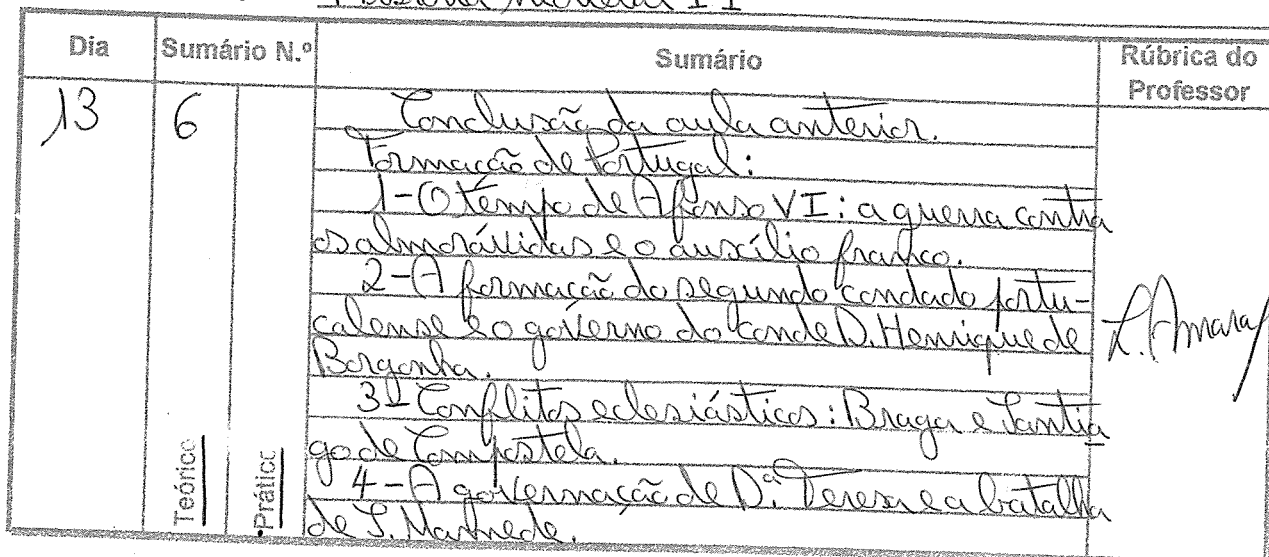 Dia Sumário N.º Sumário Rúbrica do Professor
13 6
Conclusão da aula anterior.
Formação de Portugal:
1-O tempo de Afonso VI: a guerra contra
os almorávidas e o auxílio franco.
2-A formação do segundo condado portu-
calense e o governo do conde D. Henrique de
Borgonha.
3-Conflitos eclesiásticos: Braga e Santia
go de Compostela.
4-A governação de D.ª Teresa e a batalha
de S. Mamede.
L. Amaral
Teórico
Prático